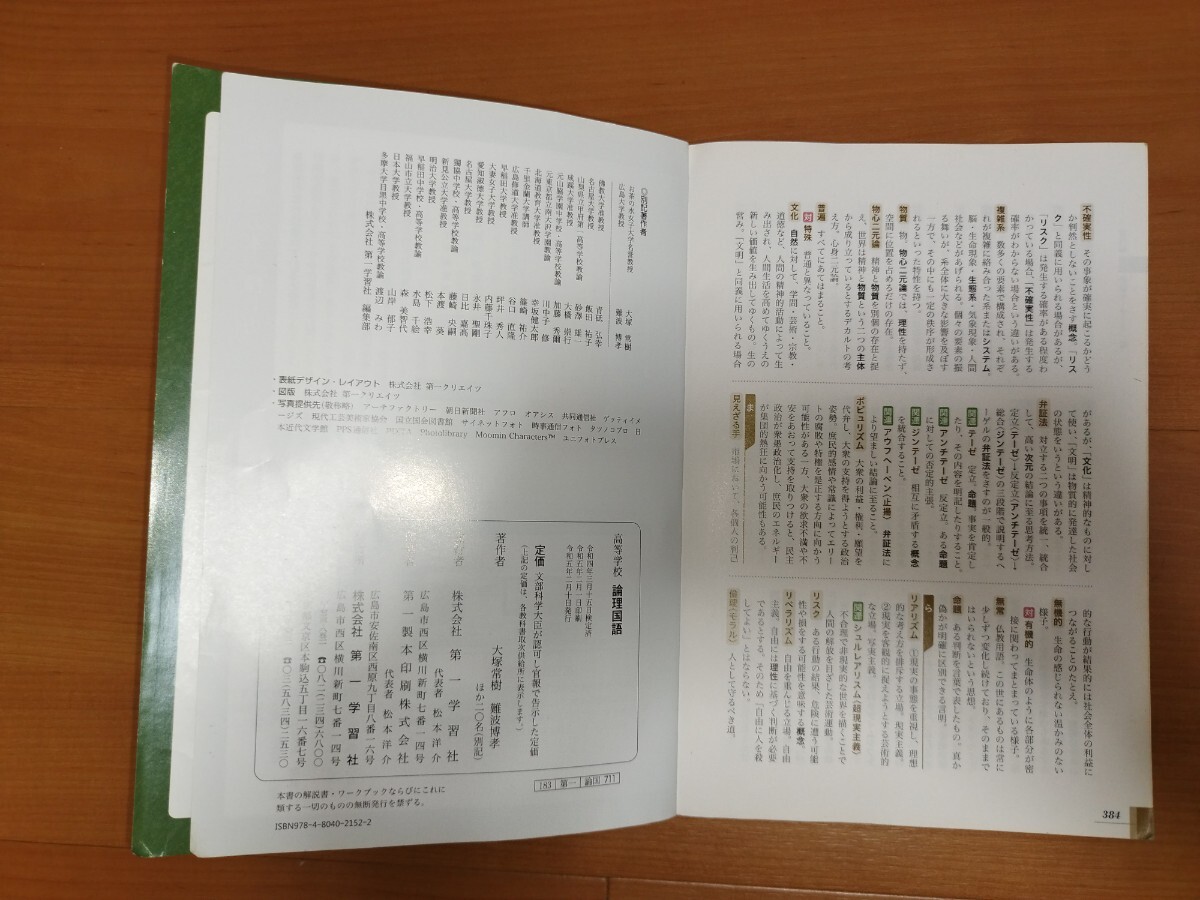 不確実性 その事象が確実に起こるかどう
か判然としないことをさす概念。「リス
ク」と同義に用いられる場合があるが、
「リスク」は発生する確率がある程度わ
かっている場合、「不確実性」は発生する
確率がわからない場合という違いがある。
複雑系 数多くの要素で構成され、それぞ
れが複雑に絡み合った系またはシステム。
脳・生命現象・生態系・気象現象・人間
社会などがあげられる。個々の要素の振
る舞いが、系全体に大きな影響を及ぼす
一方で、その中にも一定の秩序が形成さ
れるといった特性を持つ。
物質 物。物心二元論では、理性を持たず、
空間に位置を占めるだけの存在。
物心二元論 精神と物質を別個の存在と捉
え、世界は精神と物質という二つの主体
から成り立っているとするデカルトの考
え方。心身二元論。
普遍 すべてにあてはまること。
対 特殊 普通と異なっていること。
文化 自然に対して、学問・芸術・宗教・
道徳など、人間の精神的活動によって生
み出され、人間生活を高めてゆくうえの
新しい価値を生み出してゆくもの。生の
営み。「文明」と同義に用いられる場合
があるが、「文化」は精神的なものに対し
て使い、「文明」は物質的に発達した社会
の状態をいうという違いがある。
弁証法 対立する二つの事項を統一、統合
して、高い次元の結論に至る思考方法。
定立〈テーゼ〉→反定立〈アンチテーゼ〉→
総合〈ジンテーゼ〉の三段階で説明するヘ
ーゲルの弁証法をさすのが一般的。
関連 テーゼ 定立。命題。事実を肯定し
たり、その内容を明記したりすること。
関連 アンチテーゼ 反定立。ある命題
に対しての否定的主張。
関連 ジンテーゼ 相互に矛盾する概念
を統合すること。
関連 アウフヘーベン〈止揚〉 弁証法に
より望ましい結論に至ること。
ポピュリズム 大衆の利益・権利・願望を
代弁し、大衆の支持を得ようとする政治
姿勢。庶民的感情や常識によってエリー
トの腐敗や特権を是正する方向に向かう
可能性がある一方、大衆の欲求不満や不
安をあおって支持を取りつけると、民主
政治が衆愚政治化し、庶民のエネルギー
が集団的熱狂に向かう可能性もある。
ま
見えざる手 市場において、各個人の利己
的な行動が結果的には社会全体の利益に
つながることのたとえ。
無機的 生命の感じられない温かみのない
様子。
対 有機的 生命体のように各部分が密
接に関わってまとまっている様子。
無常 仏教用語。この世にあるものは常に
少しずつ変化し続けており、そのままで
はいられないという思想。
命題 ある判断を言葉で表したもの。真か
偽かが明確に区別できる言明。
ら
リアリズム ①現実の事態を重視し、理想
的な考え方を排斥する立場。現実主義。
②現実を客観的に捉えようとする芸術的
な立場。写実主義。
関連 シュルレアリスム〈超現実主義〉
不合理で非現実的な世界を描くことで
人間の解放を目ざした芸術運動。
リスク ある行動の結果、危険に遭う可能
性や損をする可能性を意味する概念。
リベラリズム 自由を重んじる立場。自由
主義。自由には理性に基づく判断が必要
であるとする。そのため「自由に人を殺
してよい」とはならない。
倫理〈モラル〉 人として守るべき道。
384
◎別記著作者
お茶の水女子大学名誉教授 大塚 常樹
広島大学教授 難波 博孝
佛教大学准教授 青砥 弘幸
名古屋大学教授 飯田 祐子
山梨県立甲府第一高等学校教諭 砂澤 雄一
成蹊大学准教授 大橋 崇行
元山脇学園中学校・高等学校教諭 加藤 秀爾
元東京都立南大沢学園教諭 川中子 修
北海道教育大学准教授 幸坂健太郎
千里金蘭大学講師 篠崎 祐介
広島修道大学准教授 谷口 直隆
早稲田大学教授 坪井 秀人
大妻女子大学教授 内藤千珠子
愛知淑徳大学教授 永井 聖剛
名古屋大学教授 日比 嘉高
獨協中学校・高等学校教諭 藤崎 央嗣
新見公立大学准教授 本渡 葵
明治大学教授 松下 浩幸
早稲田中学校・高等学校教諭 水島 千絵
福山市立大学教授 森 美智代
日本大学教授 山岸 郁子
多摩大学目黒中学校・高等学校教諭 渡辺 みわ
株式会社 第一学習社 編集部
・表紙デザイン・レイアウト 株式会社 第一クリエイツ
・図版 株式会社 第一クリエイツ
・写真提供先(敬称略) アーチファクトリー 朝日新聞社 アフロ オアシス 共同通信社 ゲッティイメ
ージズ 現代工芸美術家協会 国立国会図書館 サイネットフォト 時事通信フォト タツノコプロ 日
本近代文学館 PPS通信社 PIXTA Photolibrary Moomin Characters™ ユニフォトプレス
高等学校 論理国語
令和四年三月十五日検定済
令和五年二月一日印刷
令和五年二月十日発行
定価 文部科学大臣が認可し官報で告示した定価
(上記の定価は、各教科書取次供給所に表示します。)
著作者 大塚常樹 難波博孝
ほか二〇名(別記)
者 株式会社 第一学習社
代表者 松本洋介
広島市西区横川新町七番一四号
第一製本印刷株式会社
代表者 松本洋介
広島市安佐南区西原九丁目八番一六号
株式会社 第一学習社
広島市西区横川新町七番一四号
☎〇八二-二三四-六八〇〇
東京都文京区本駒込五丁目一六番七号
☎〇三-五八三四-二五三〇
183 第一 論国 711
本書の解説書・ワークブックならびにこれに
類する一切のものの無断発行を禁ずる。
ISBN978-4-8040-2152-2